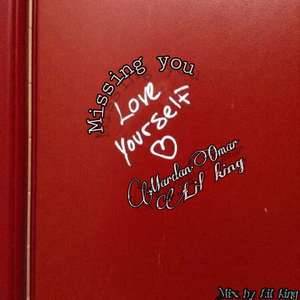 Missing you
Love
Yourself
Mardan Omar
Lil king
Mix by Lil king